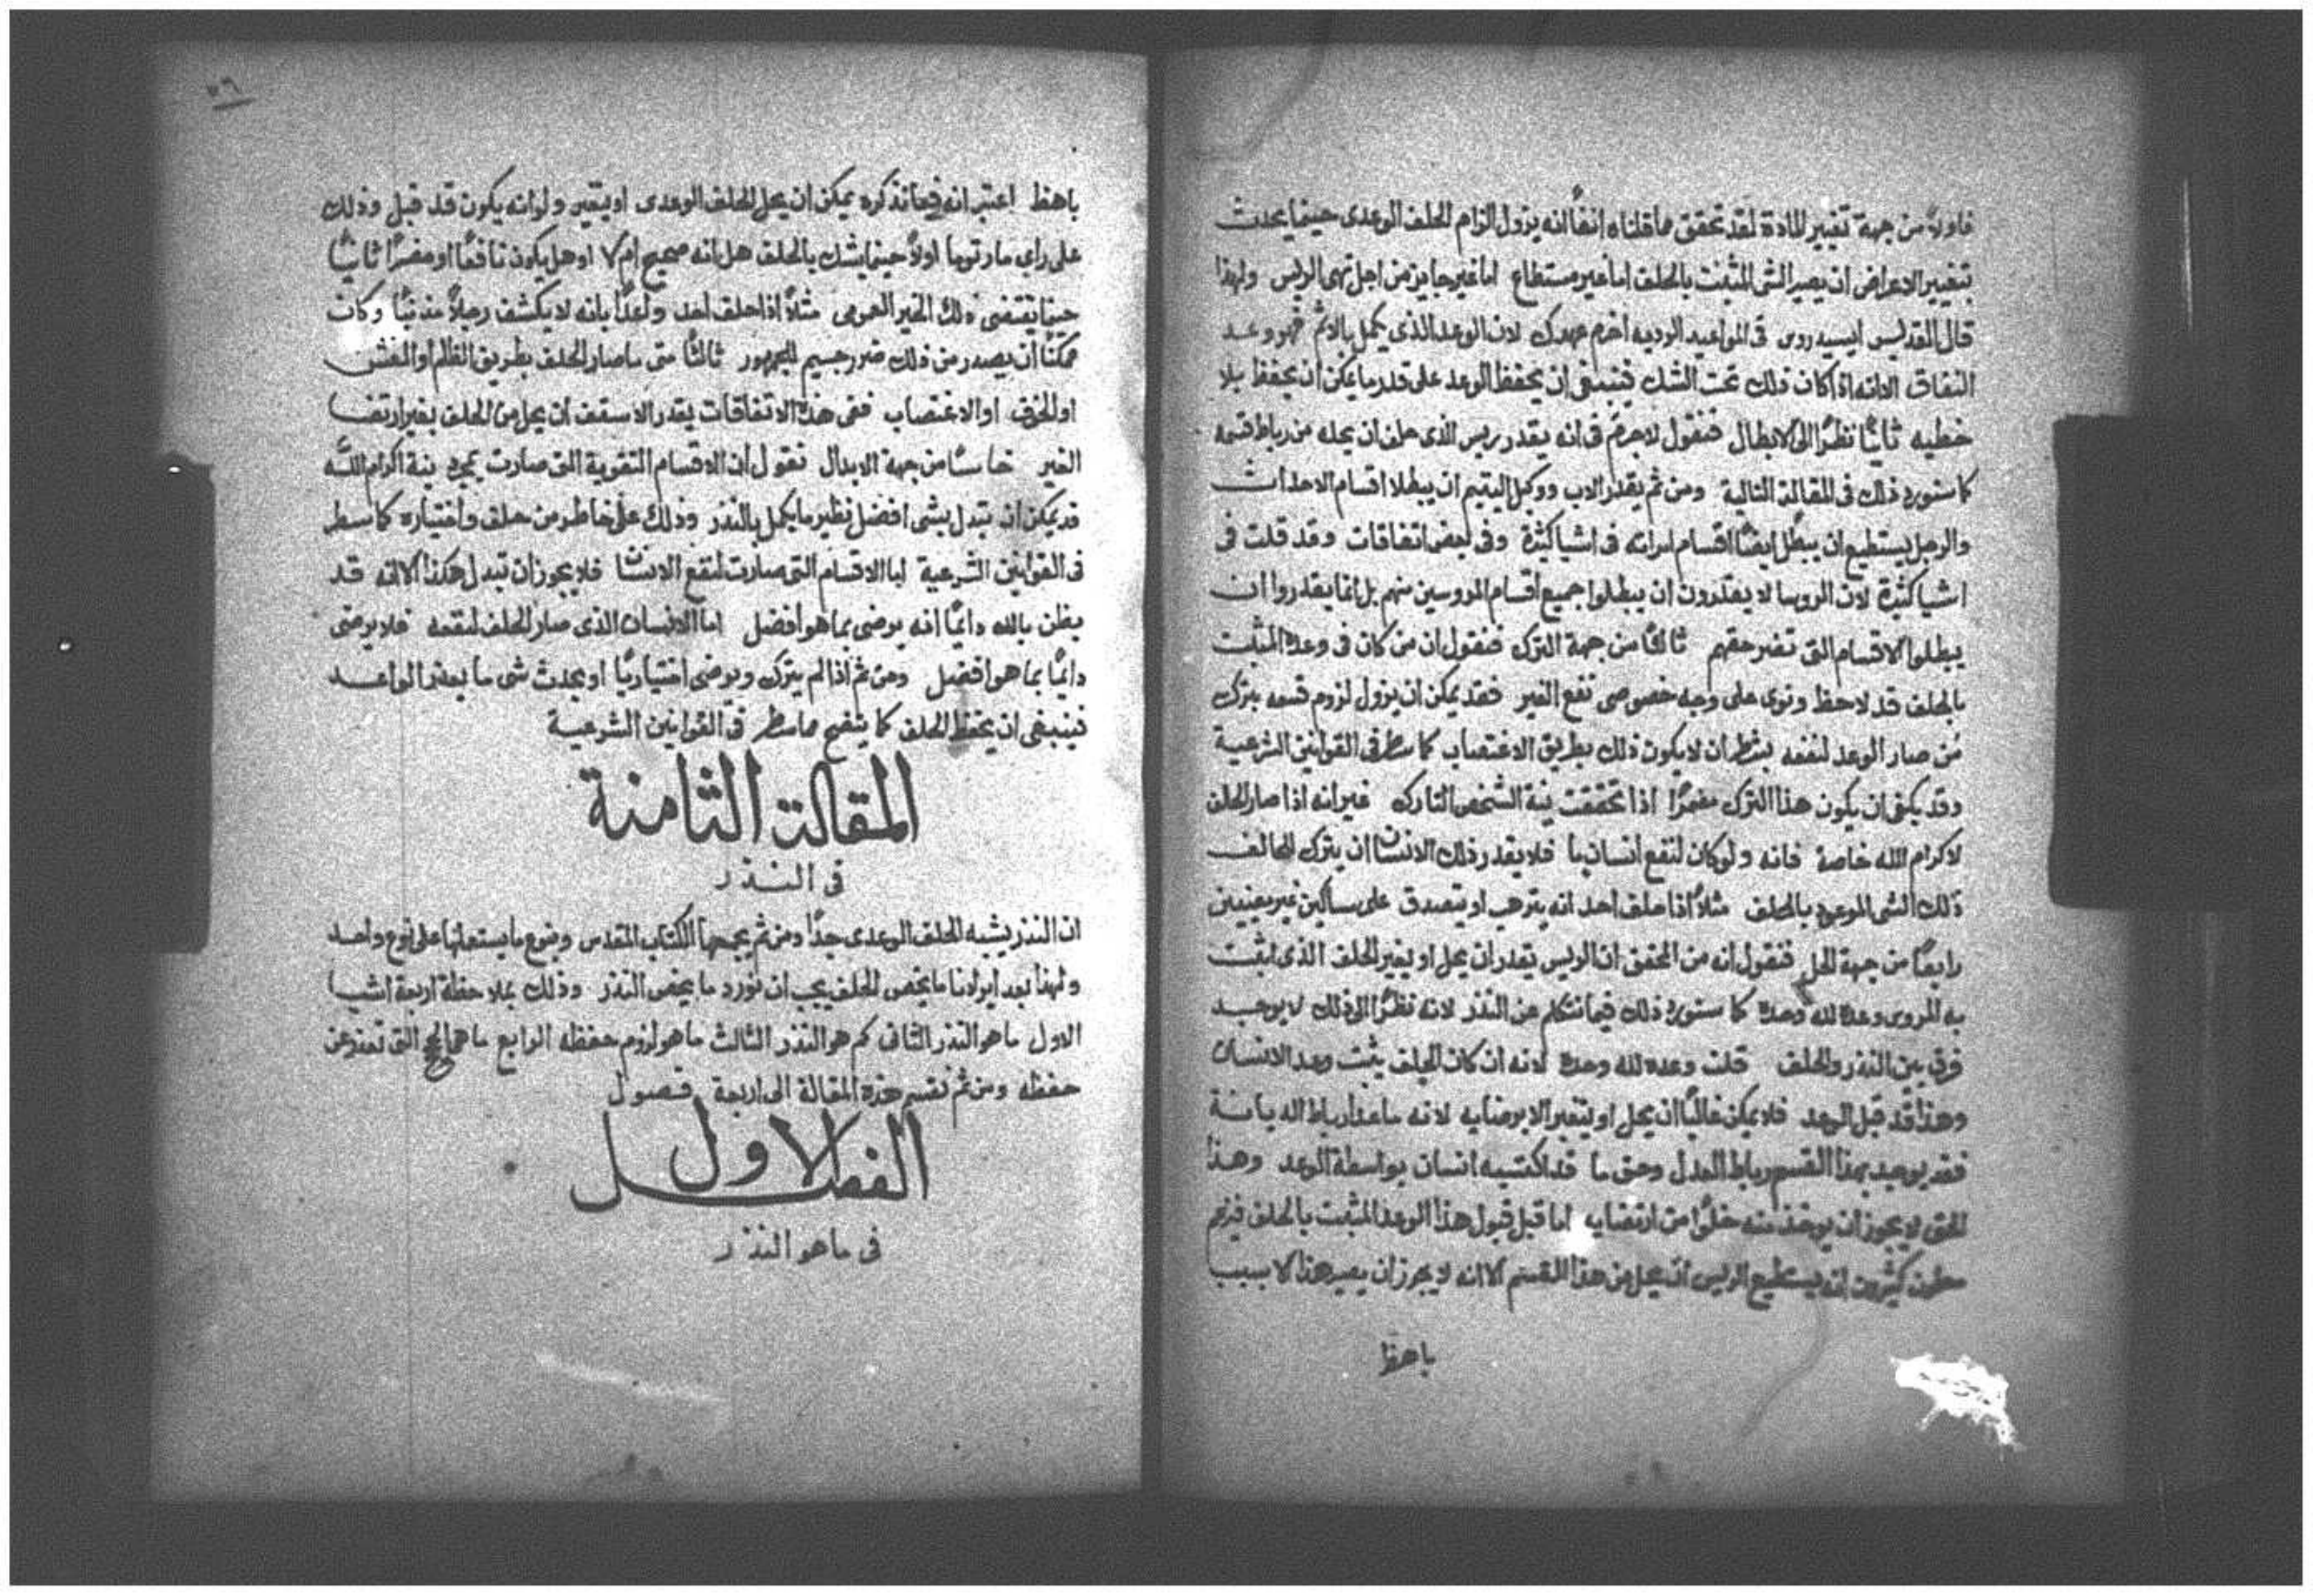 فاولاً من جهة تغيير المادة لقد تحقق مما قلناه انفاً انه يزول الزام الحلف الوعدى حينما يحدث
بتغيير الاعراض ان يصير الشى المثبت بالحلف اما غير مستطاع اما غير جايز من اجل نهى الريس ولهذا
قال القديس ايسيدروس فى المواعيد الرديه اخرم عهدك لان الوعد الذى يكمل بالاثم فهو وعد
النفاق الا انه اذا كان ذلك تحت الشك فينبغى ان يحفظ الوعد على قدر ما يمكن ان يحفظ بلا
خطيه ثانياً نظراً الى الابطال فنقول لا جرم فى انه يقدر ريس الذى حلف ان يحله من رباط قسمه
كما سنورد ذلك فى المقالة التالية ومن ثم يقدر الاب ووكيل اليتيم ان يبطلا اقسام الاحداث
والرجل يستطيع ان يبطل ايضاً اقسام امراته فى اشيا كثيرة وفى بعض اتفاقات وقد قلت فى
اشيا كثيرة لان الروسا لا يقدرون ان يبطلوا جميع اقسام المروسين منهم بل انما يقدروا ان
يبطلوا الاقسام التى تضر حقهم ثالثاً من جهة الترك فنقول ان من كان فى وعده المثبت
بالحلف قد لاحظ ونوى على وجه خصوصى نفع الغير فقد يمكن ان يزول لزوم قسمه بترك
من صار الوعد لنفعه بشرط ان لا يكون ذلك بطريق الاغتصاب كما سطر فى القوانين الشرعية
وقد يكفى ان يكون هذا الترك مضمراً اذا تحققت نية الشخص التارك غير انه اذا صار الحلف
لاكرام الله خاصة فانه ولو كان لنفع انسان ما فلا يقدر ذلك الانسان ان يترك للحالف
ذلك الشى الموعود بالحلف مثلاً اذا حلف احد انه يترهب او يتصدق على مساكين غير معينين
رابعاً من جهة الحل فنقول انه من المحقق ان الريس يقدر ان يحل او يغير الحلف الذى اثبت
به المروس وعده لله وحده كما سنورد ذلك فيما نتكلم عن النذر لانه نظراً الى ذلك لا يوجد
فرق بين النذر والحلف قلت وعده لله وحده لانه ان كان الحلف يثبت وعد الانسان
وهذا قد قبل الوعد فلا يمكن غالباً ان يحل او يتغير الا برضايه لانه ما عدا رباط الديانة
فقد يوجد بهذا القسم رباط العدل وحق ما قد اكتسبه انسان بواسطة الوعد وهذا
الحق لا يجوز ان يوخذ منه خلواً من ارتضايه اما قبل قبول هذا الوعد المثبت بالحلف فيزعم
كثيرون انه يستطيع الريس ان يحل من هذا القسم الا انه لا يجوز ان يصير هذا الا بسبب
باهظ
٧٦
باهظ اعتبر انه فيما نذكره يمكن ان يحل الحلف الوعدى او يتغير ولو انه يكون قد قبل وذلك
على راى مار توما اولاً حينما يشك بالحلف هل انه صحيح ام لا او هل يكون نافعاً او مضراً ثانياً
حينما يقتضى ذلك الخير العمومى مثلاً اذا حلف احد واعداً بانه لا يكشف رجلاً مذنباً وكان
ممكناً ان يصدر من ذلك ضرر جسيم للجمهور ثالثاً متى ما صار الحلف بطريق الظلم او الغش
او الخوف او الاغتصاب ففى هذه الاتفاقات يقدر الاسقف ان يحل من الحلف بغير ارتضا
الغير خامساً من جهة الابدال نقول ان الاقسام التقوية التى صارت بمجرد نية اكرام الله
قد يمكن ان تبدل بشى افضل نظير ما يكمل بالنذر وذلك على خاطر من حلف واختياره كما سطر
فى القوانين الشرعية اما الاقسام التى صارت لنفع الانسان فلا يجوز ان تبدل هكذا لانه قد
يظن بالله دايماً انه يرضى بما هو افضل اما الانسان الذى صار الحلف لنفعه فلا يرضى
دايماً بما هو افضل ومن ثم اذا لم يترك ويرضى اختيارياً او يحدث شى ما يعذر الواعد
فينبغى ان يحفظ الحلف كما يتضح مما سطر فى القوانين الشرعية
المقالة الثامنة
فى النذر
ان النذر يشبه الحلف الوعدى جداً ومن ثم يجمعهما الكتاب المقدس وبنوع ما يستعملها على نوع واحد
ولهذا بعد ايرادنا ما يخص الحلف يجب ان نورد ما يخص النذر وذلك بملاحظة اربعة اشيا
الاول ما هو النذر الثانى كم هو النذر الثالث ما هو لزوم حفظه الرابع ما هى التى تعذر عن
حفظه ومن ثم نقسم هذه المقالة الى اربعة فصول
الفصل الاول
فى ما هو النذر